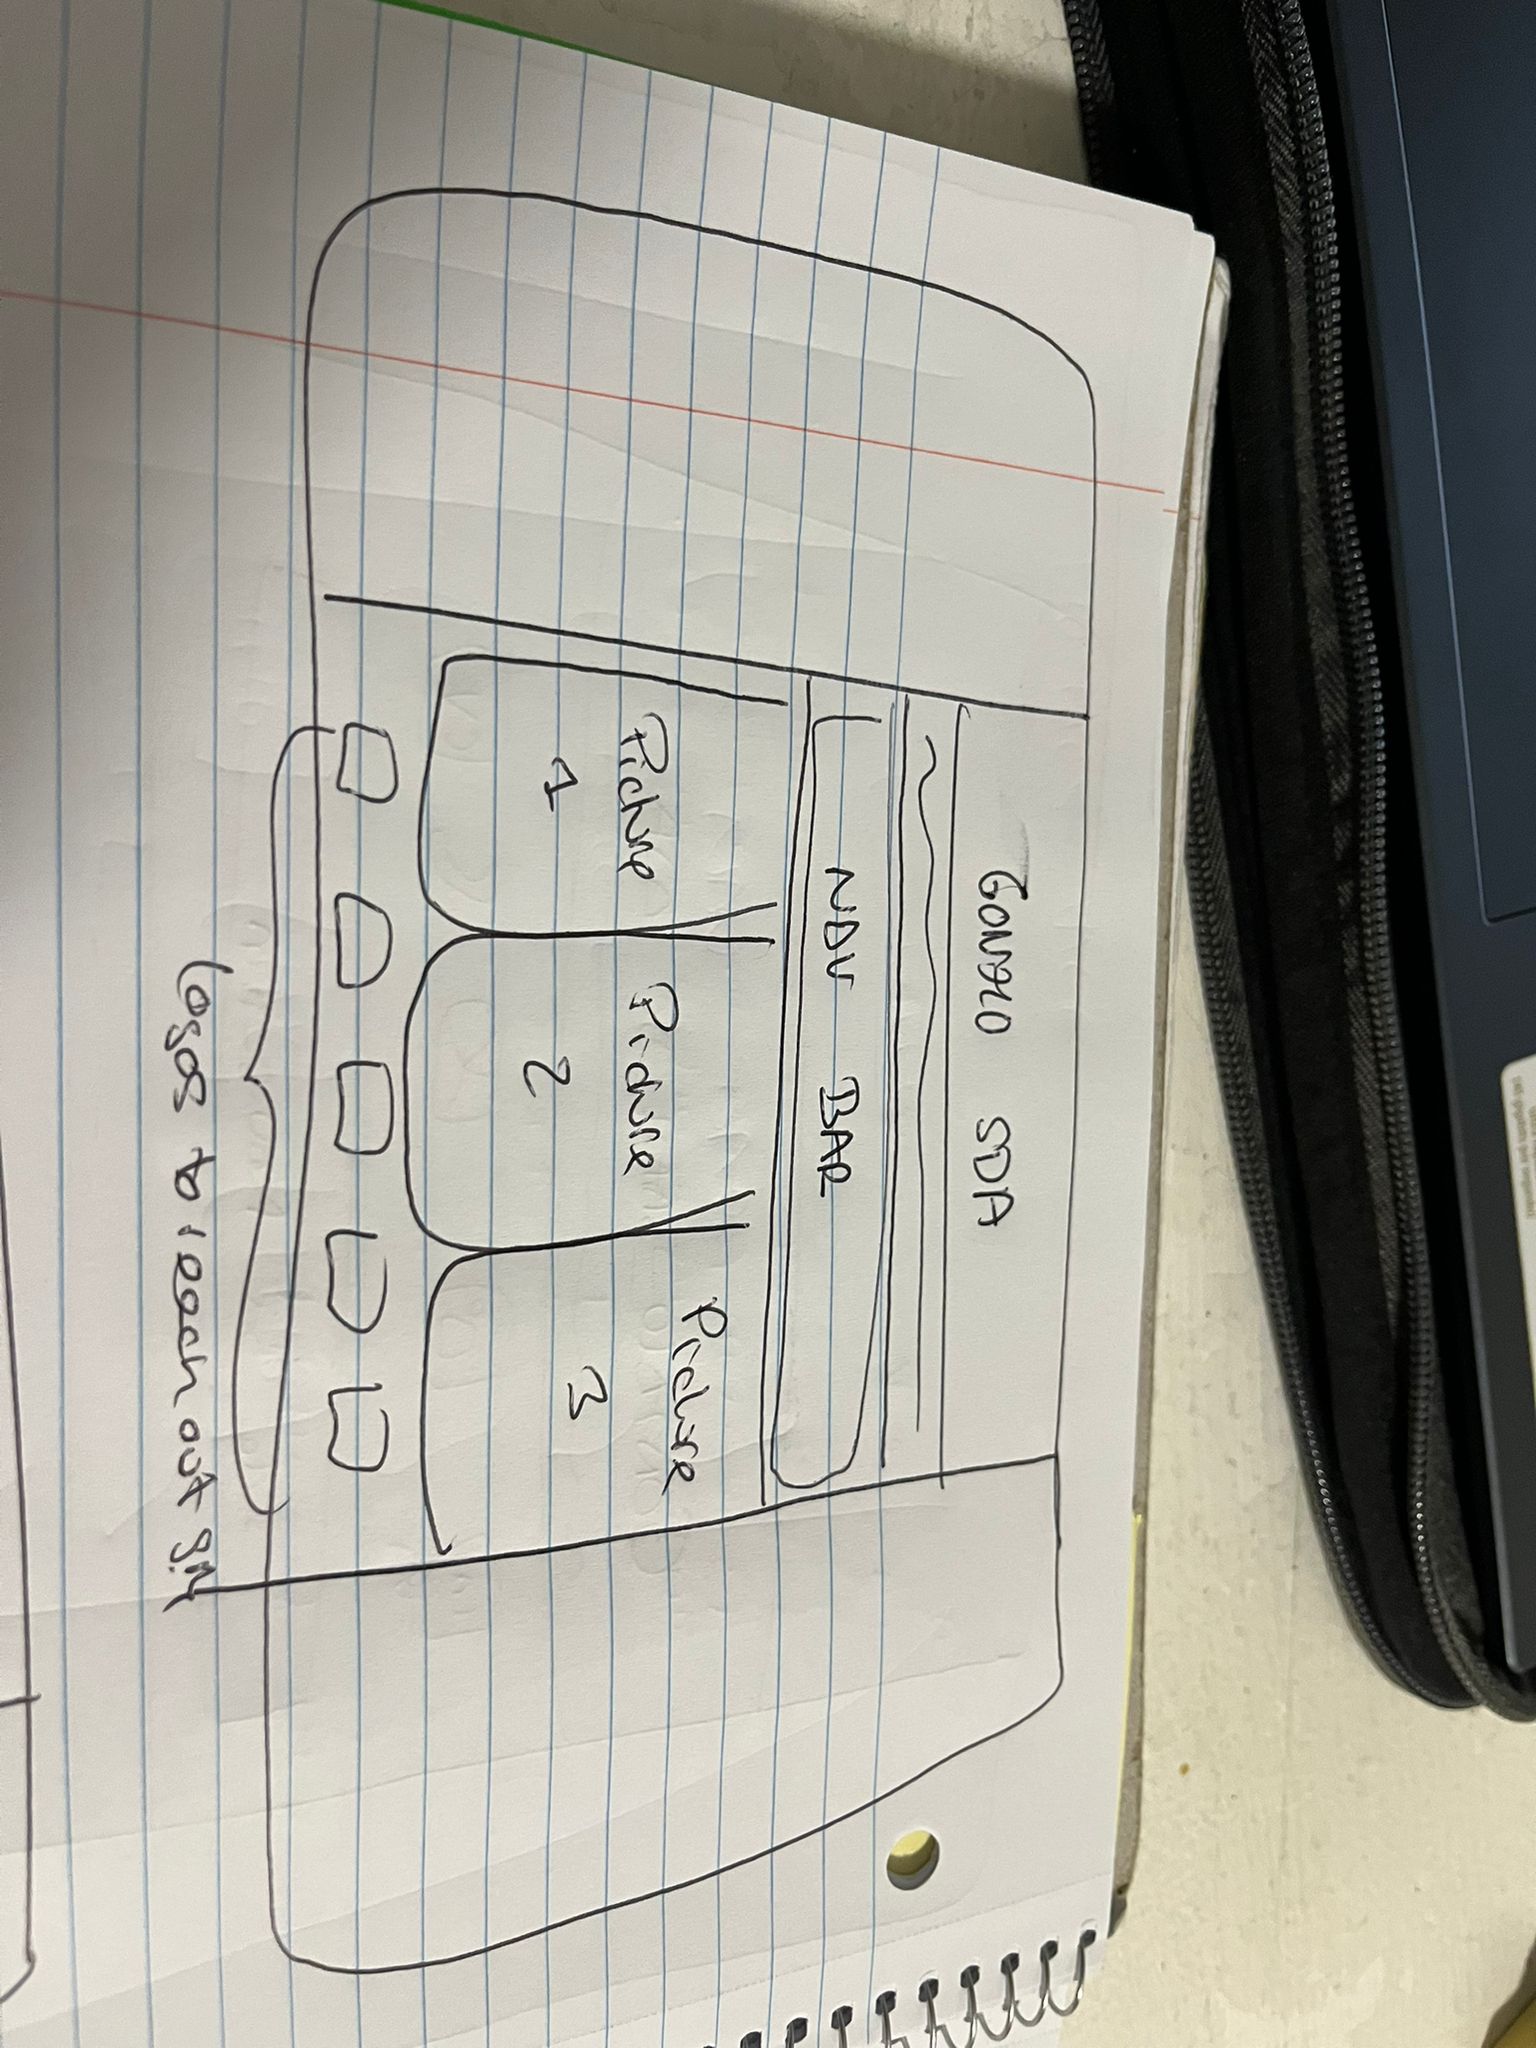 GONZALO SDA
NAV BAR
Picture
1
Picture
2
Picture
3
Logos to reach out